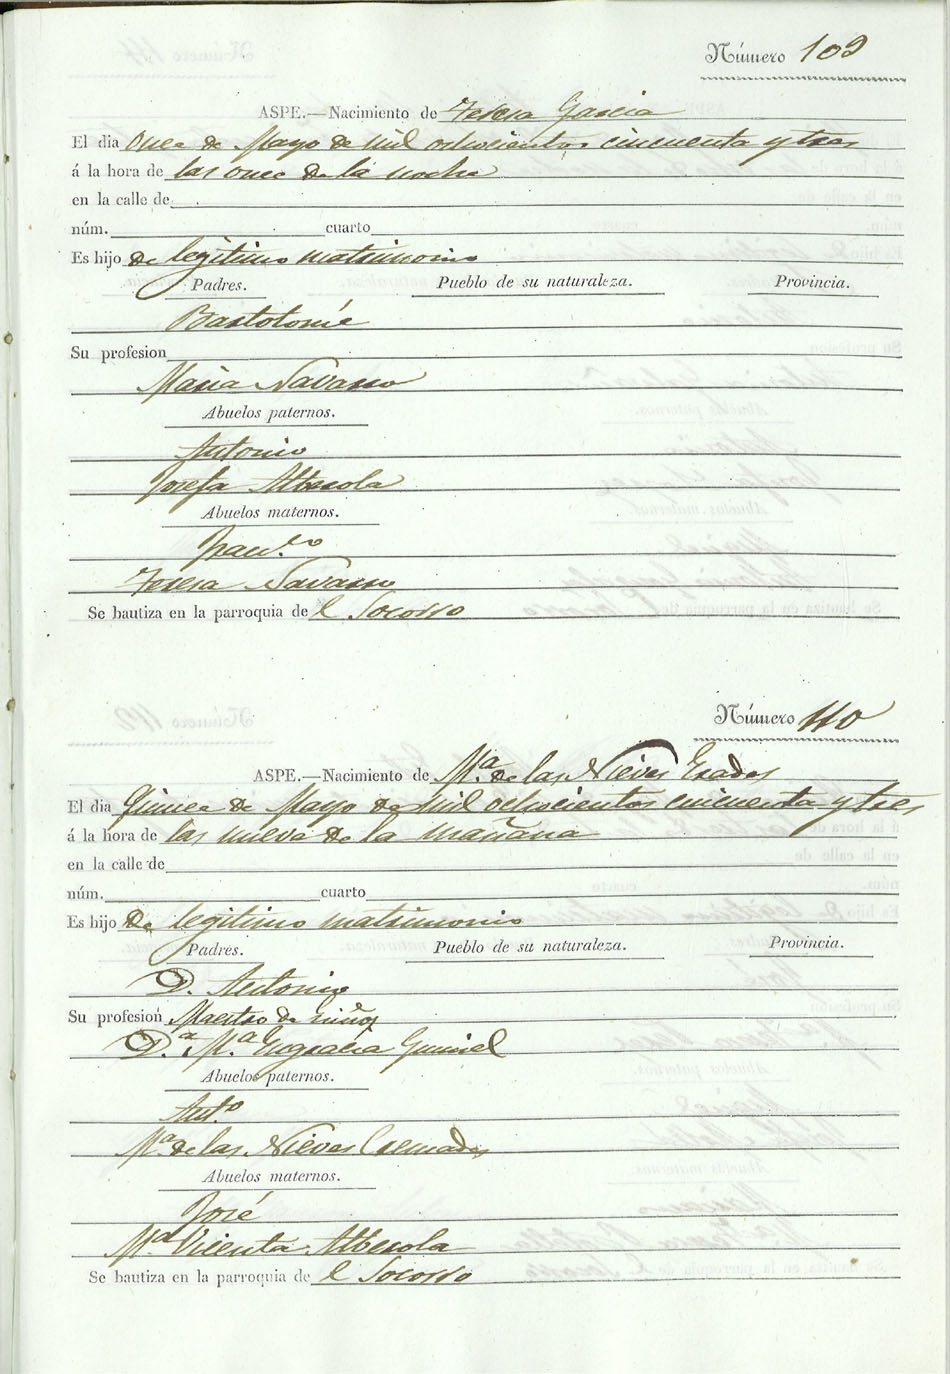 Número 109
ASPE.—Nacimiento de Teresa Garcia
El dia Once de Mayo de mil ochocientos cincuenta y tres
á la hora de las once de la noche
en la calle de
núm. cuarto
Es hijo de legitimo matrimonio
Padres. Pueblo de su naturaleza. Provincia.
Bartolomé
Su profesion
Maria Navarro
Abuelos paternos.
Antonio
Josefa Alberola
Abuelos maternos.
Fran.co
Teresa Navarro
Se bautiza en la parroquia de l Socorro
Número 110
ASPE.—Nacimiento de M.a de las Nieves
El dia Quince de Mayo de mil ochocientos cincuenta y tres
á la hora de las nueve de la mañana
en la calle de
núm. cuarto
Es hijo de legitimo matrimonio
Padres. Pueblo de su naturaleza. Provincia.
D. Antonio
Su profesion Maestro de niños
D.a M.a Engracia
Abuelos paternos.
Ant.o
M.a de las Nieves Cremades
Abuelos maternos.
José
M.a Vicenta Alberola
Se bautiza en la parroquia de l Socorro